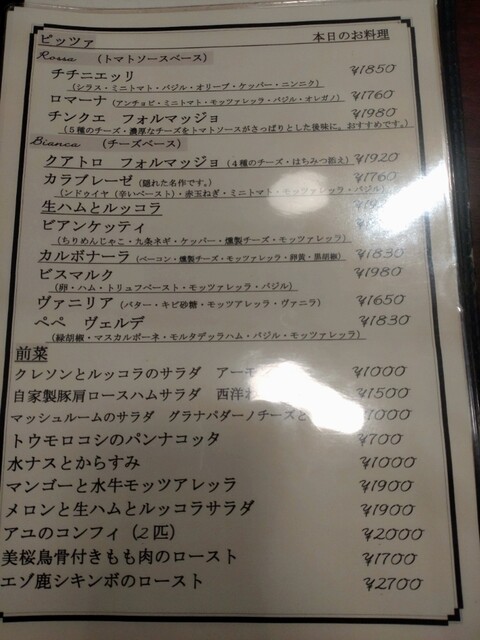 ピッツァ 本日のお料理
Rossa （トマトソースベース）
チチニエッリ ¥1850
（シラス・ミニトマト・バジル・オリーブ・ケッパー・ニンニク）
ロマーナ（アンチョビ・ミニトマト・モッツァレッラ・バジル・オレガノ） ¥1760
チンクエ フォルマッジョ ¥1980
（5種のチーズ・濃厚なチーズをトマトソースがさっぱりとした後味に。おすすめです。）
Bianca （チーズベース）
クアトロ フォルマッジョ（4種のチーズ・はちみつ添え） ¥1920
カラブレーゼ（隠れた名作です。） ¥1760
（ンドゥイヤ（辛いペースト）・赤玉ねぎ・ミニトマト・モッツァレッラ・バジル）
生ハムとルッコラ
ビアンケッティ
（ちりめんじゃこ・九条ネギ・ケッパー・燻製チーズ・モッツァレッラ）
カルボナーラ（ベーコン・燻製チーズ・モッツァレッラ・卵黄・黒胡椒） ¥1830
ビスマルク ¥1980
（卵・ハム・トリュフペースト・モッツァレッラ・バジル）
ヴァニリア（バター・キビ砂糖・モッツァレッラ・ヴァニラ） ¥1650
ペペ ヴェルデ ¥1830
（緑胡椒・マスカルポーネ・モルタデッラハム・バジル・モッツァレッラ）
前菜
クレソンとルッコラのサラダ ¥1000
自家製豚肩ロースハムサラダ ¥1500
マッシュルームのサラダ グラナパダーノチーズと
トウモロコシのパンナコッタ ¥700
水ナスとからすみ ¥1000
マンゴーと水牛モッツアレッラ ¥1900
メロンと生ハムとルッコラサラダ ¥1900
アユのコンフィ（2匹） ¥2000
美桜鳥骨付きもも肉のロースト ¥1700
エゾ鹿シキンボのロースト ¥2700